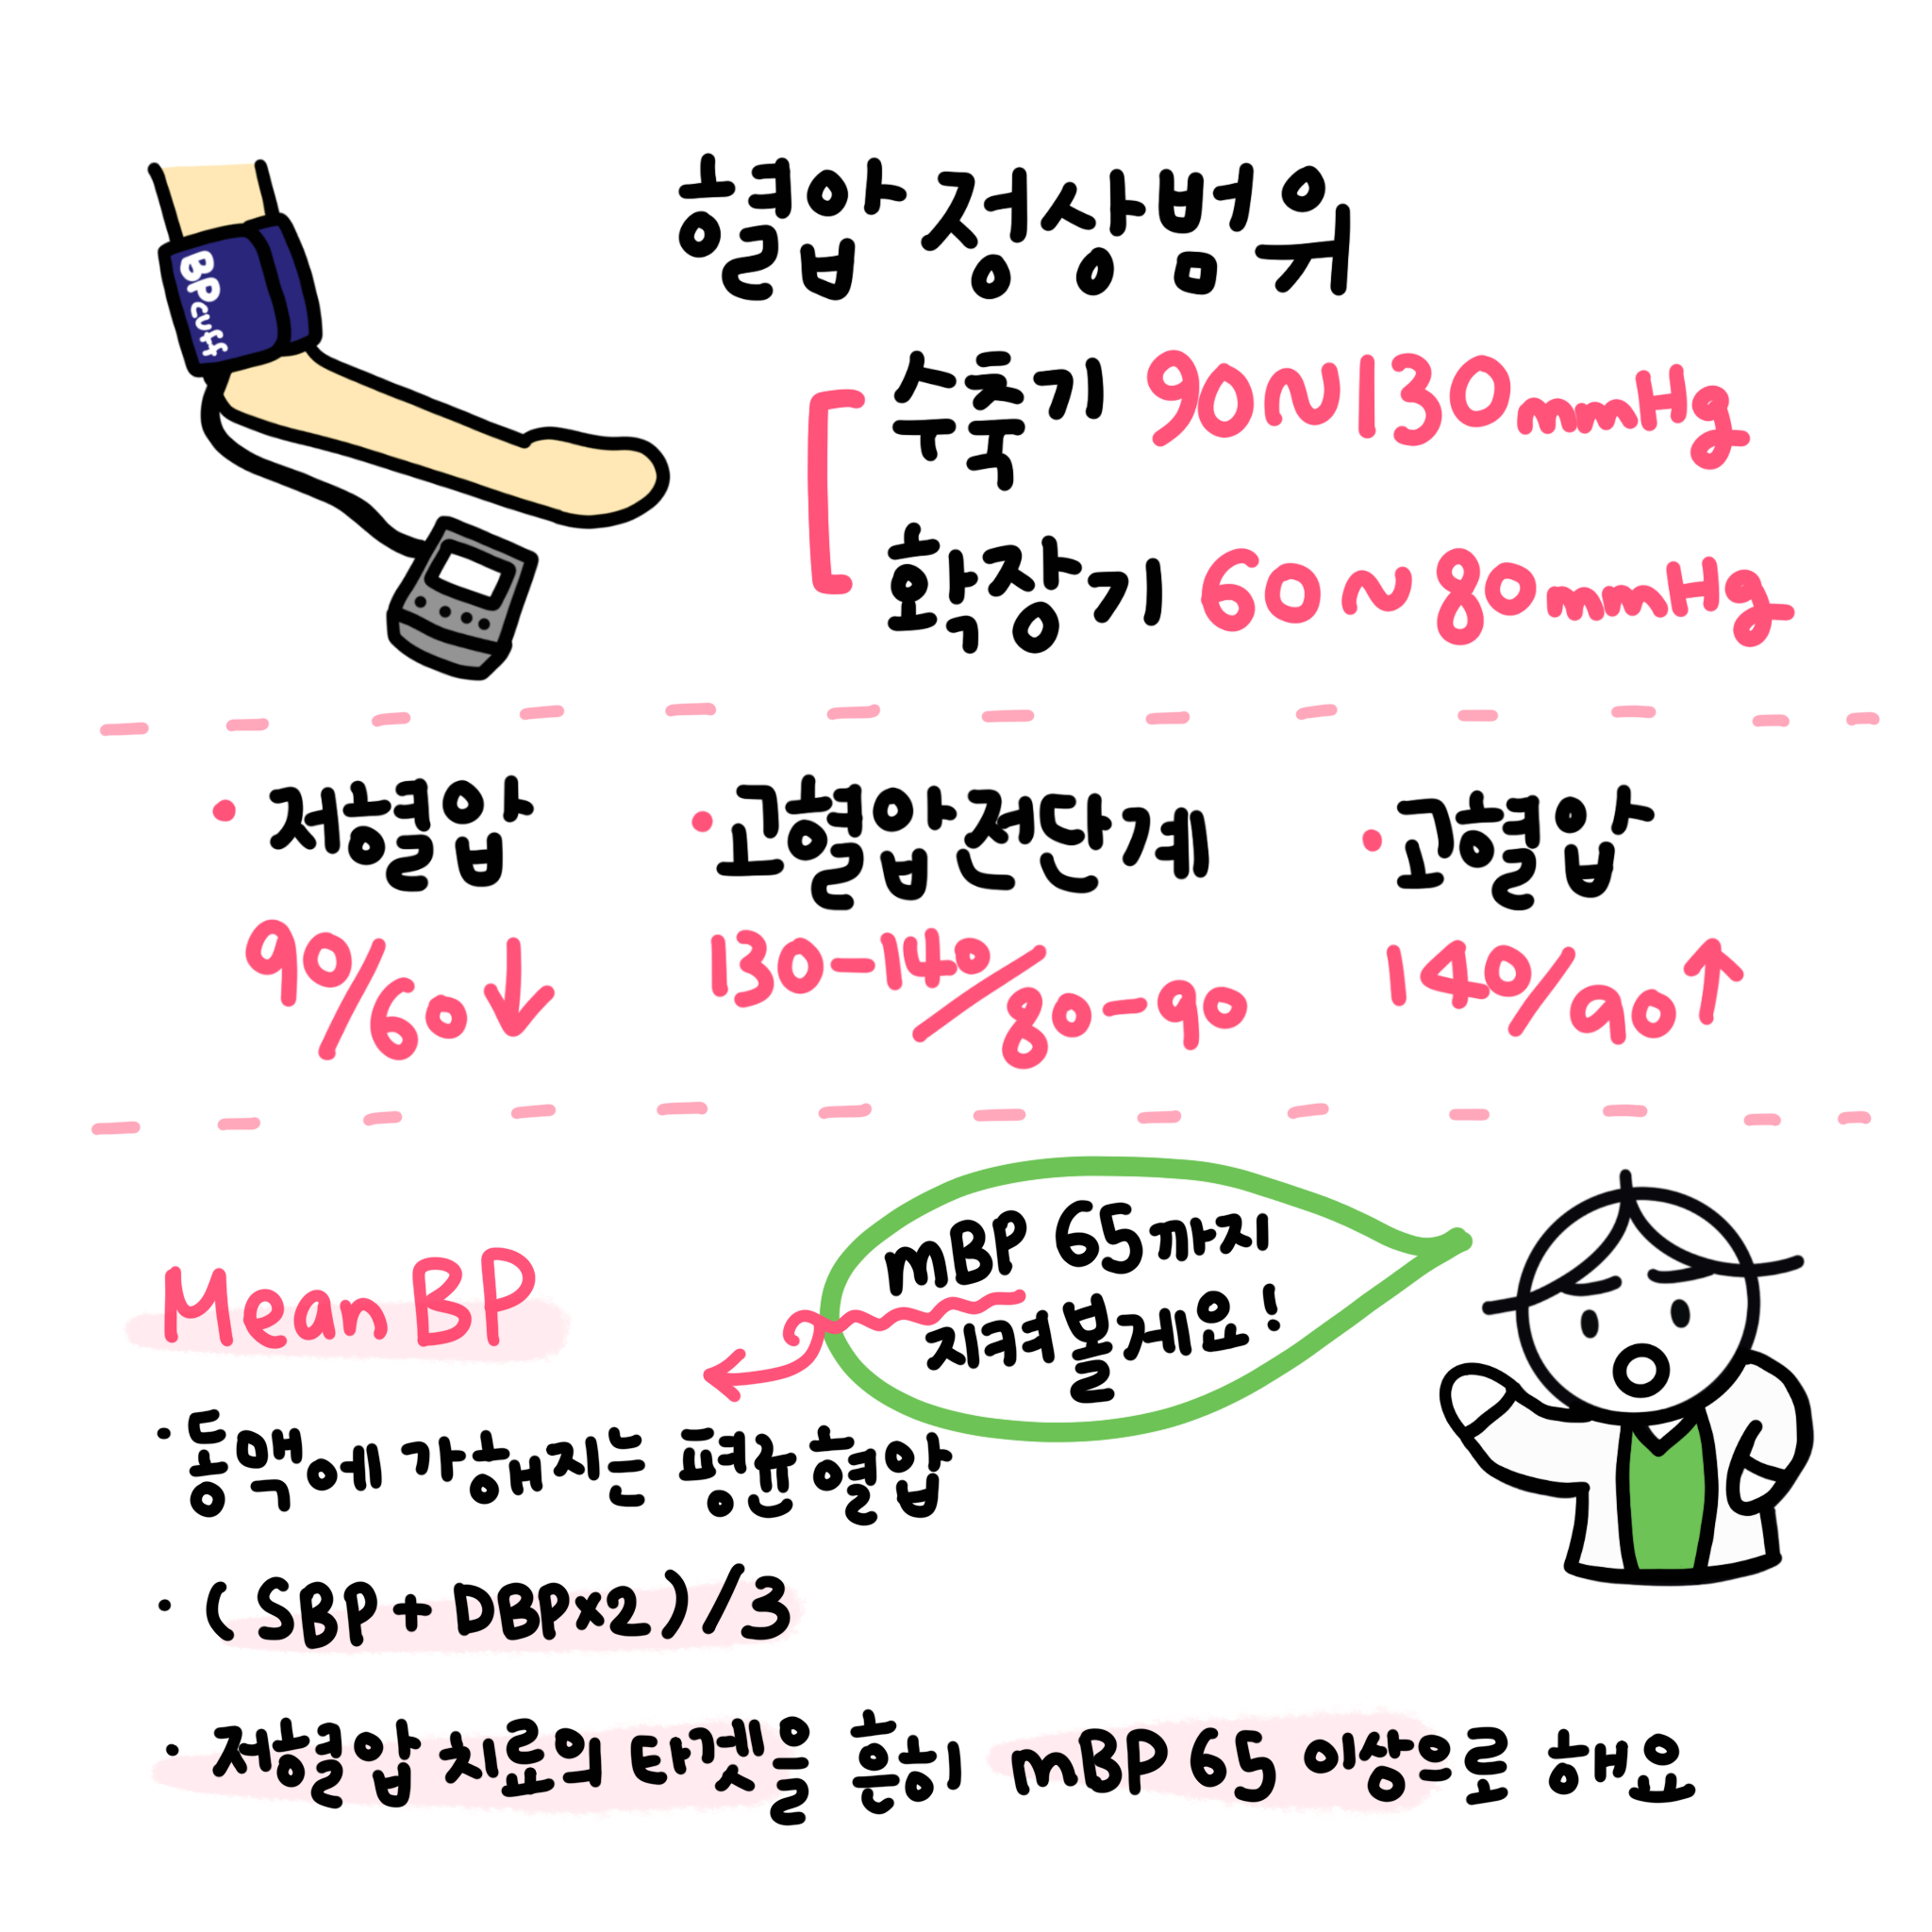 BP cuff
혈압 정상범위
수축기 90~130mmHg
확장기 60~80mmHg
• 저혈압
90/60↓
• 고혈압 전단계
130-140/80-90
• 고혈압
140/90↑
mBP 65까지
지켜볼게요!
Mean BP
· 동맥에 가해지는 평균 혈압
· (SBP+DBP×2)/3
· 저혈압 치료의 타겟을 흔히 mBP 65 이상으로 해요